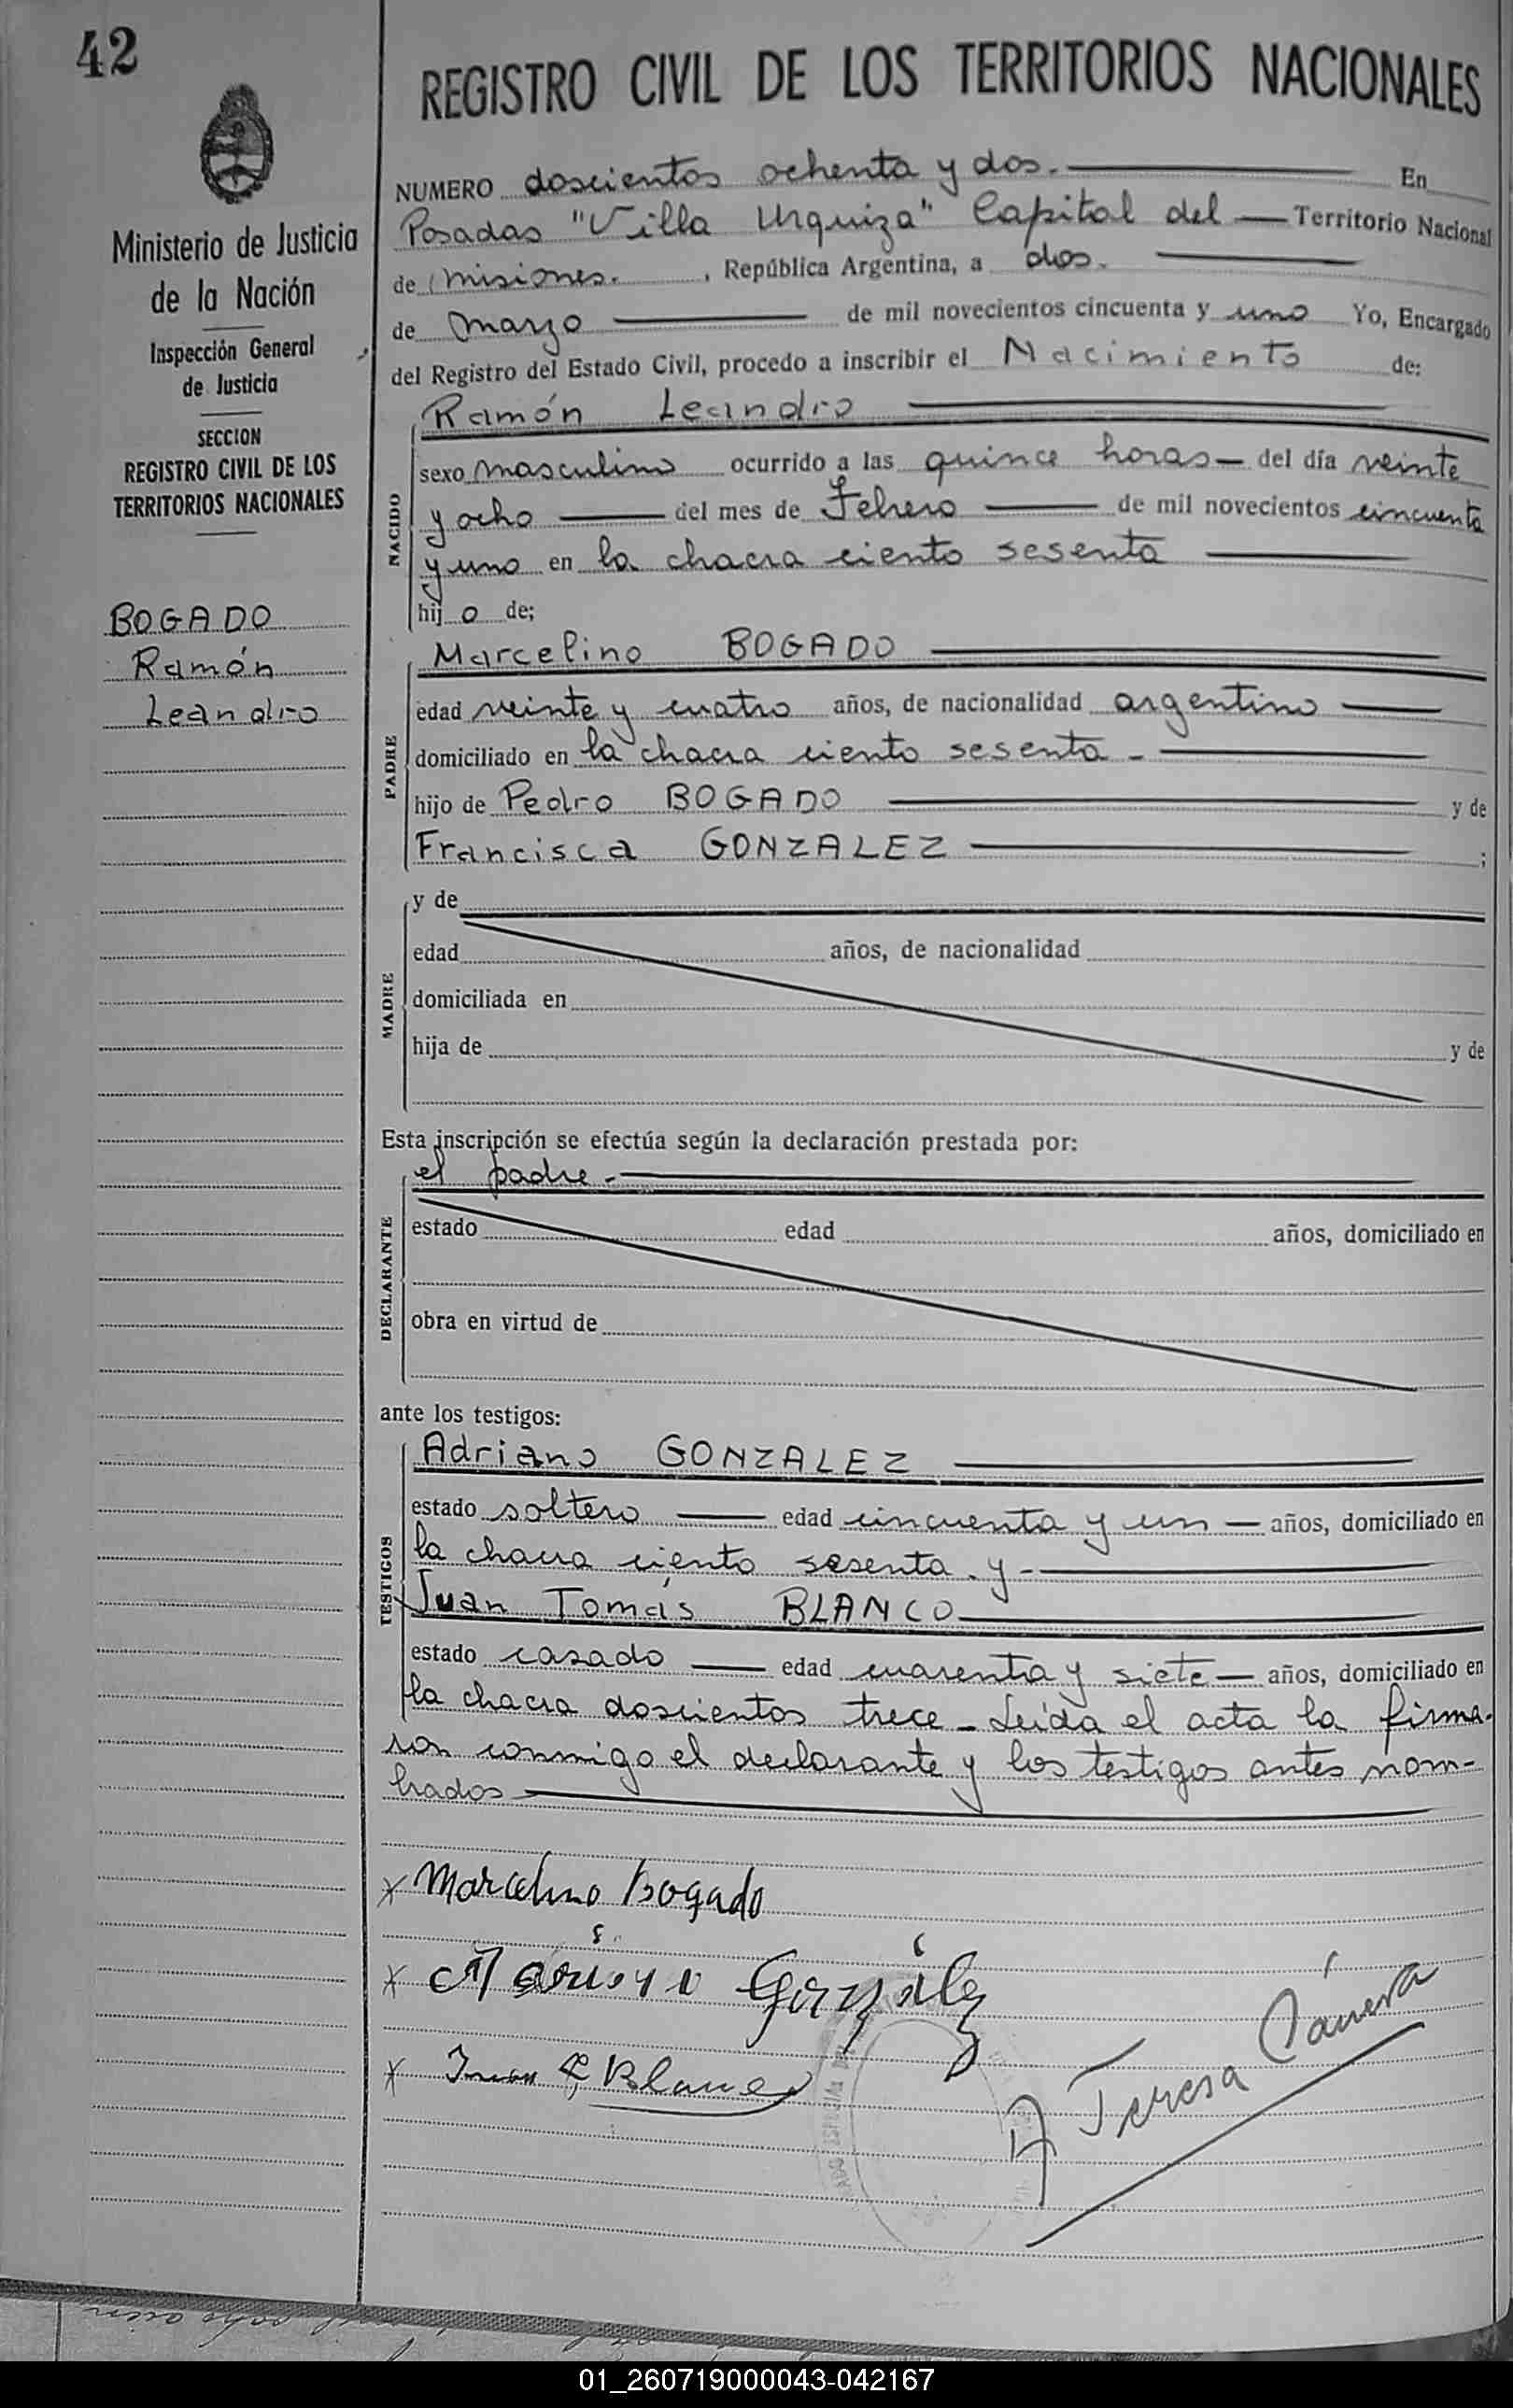 42
REGISTRO CIVIL DE LOS TERRITORIOS NACIONALES
Ministerio de Justicia
de la Nación
Inspección General
de Justicia
SECCION
REGISTRO CIVIL DE LOS
TERRITORIOS NACIONALES
BOGADO
Ramón
Leandro
NUMERO doscientos ochenta y dos. En
Posadas "Villa Urquiza" Capital del Territorio Nacional
de Misiones. , República Argentina, a dos.
de marzo de mil novecientos cincuenta y uno Yo, Encargado
del Registro del Estado Civil, procedo a inscribir el Nacimiento de:
NACIDO
Ramón Leandro
sexo masculino ocurrido a las quince horas del día veinte
y ocho del mes de Febrero de mil novecientos cincuenta
y uno en la chacra ciento sesenta
hij o de;
PADRE
Marcelino BOGADO
edad veinte y cuatro años, de nacionalidad argentino
domiciliado en la chacra ciento sesenta -
hijo de Pedro BOGADO y de
Francisca GONZALEZ ;
MADRE
y de
edad años, de nacionalidad
domiciliada en
hija de y de
Esta inscripción se efectúa según la declaración prestada por:
DECLARANTE
el padre.
estado edad años, domiciliado en
obra en virtud de
ante los testigos:
TESTIGOS
Adriano GONZALEZ
estado soltero edad cincuenta y un años, domiciliado en
la chacra ciento sesenta. y -
Juan Tomás BLANCO
estado casado edad cuarenta y siete años, domiciliado en
la chacra doscientos trece - Leída el acta la firma-
ron conmigo el declarante y los testigos antes nom-
brados
x Marcelino Bogado
x Adriano González
x Juan T. Blanco
A Teresa
01_260719000043-042167